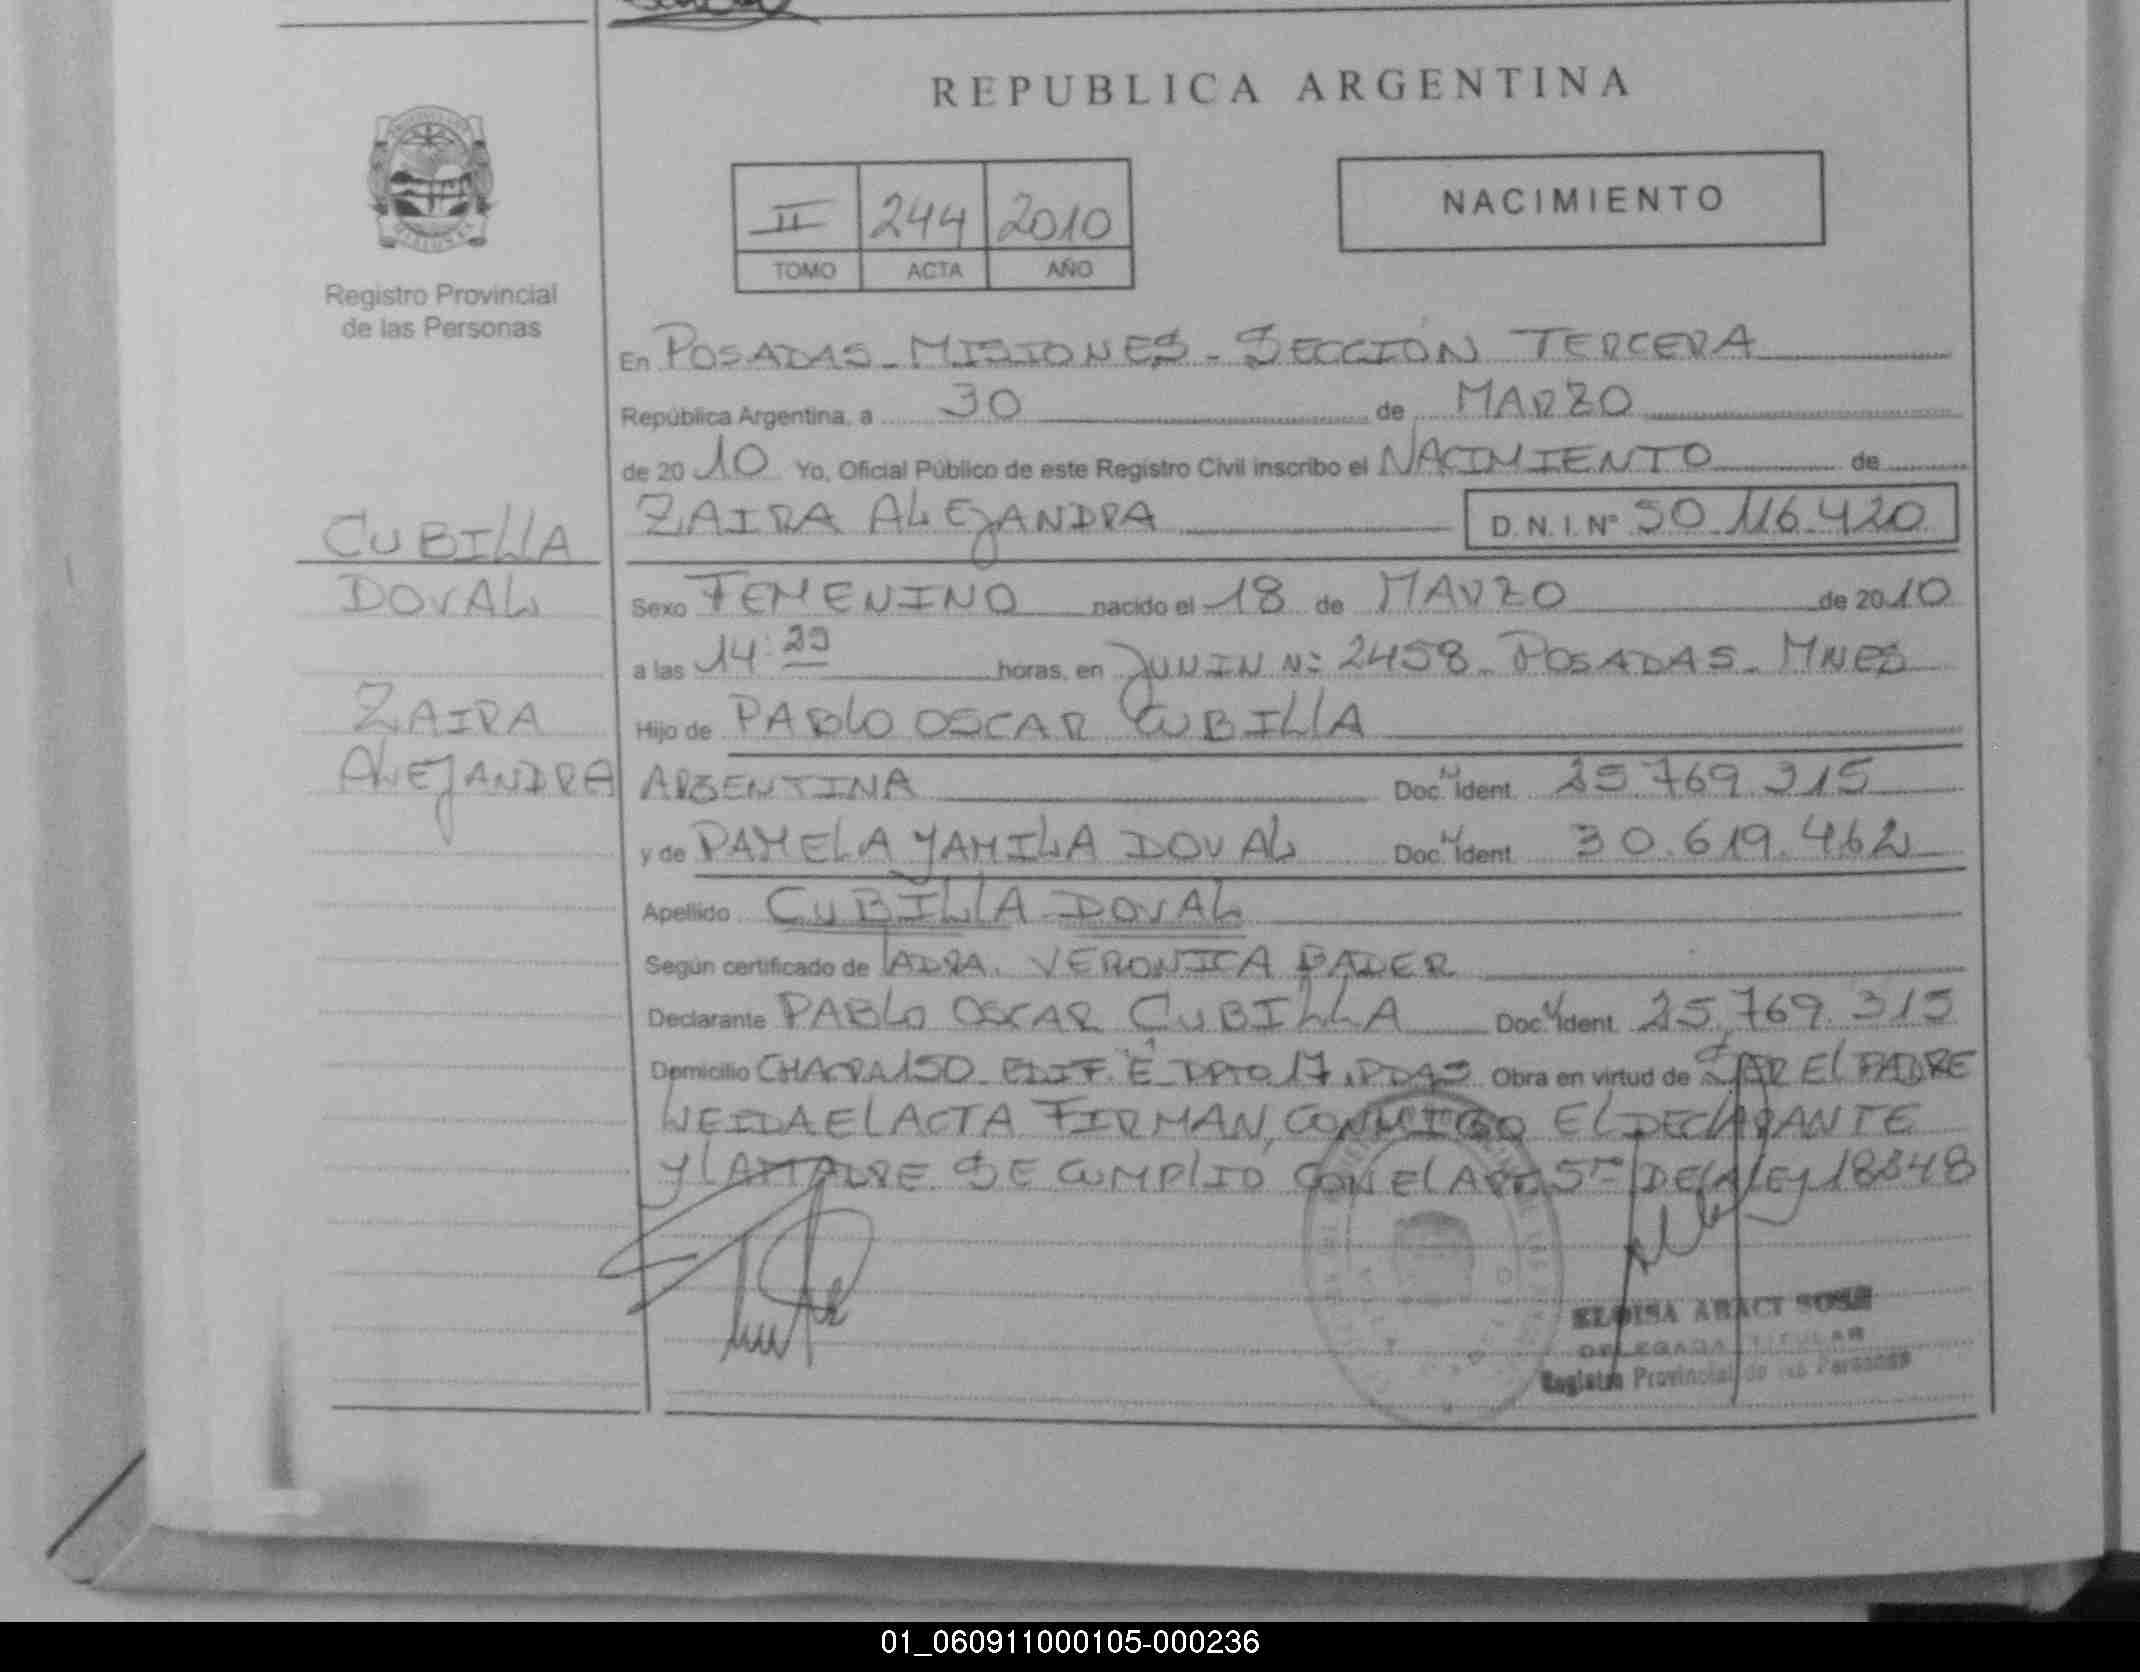 REPUBLICA ARGENTINA
NACIMIENTO
II 244 2010
TOMO ACTA AÑO
Registro Provincial
de las Personas
En POSADAS - MISIONES - SECCION TERCERA
República Argentina, a 30 de MARZO
de 2010 Yo, Oficial Público de este Registro Civil inscribo el NACIMIENTO de
ZAIRA ALEJANDRA D.N.I.Nº 50.116.420
CUBILLA
DOVAL
ZAIRA
ALEJANDRA
Sexo FEMENINO nacido el 18 de MARZO de 2010
a las 14:29 horas, en JUNIN Nº 2458 - POSADAS - MNES
Hijo de PABLO OSCAR CUBILLA
ARGENTINA Doc. N Ident. 25.769.315
y de PAMELA YAMILA DOVAL Doc. N Ident. 30.619.462
Apellido CUBILLA DOVAL
Según certificado de LA DRA. VERONICA BADER
Declarante PABLO OSCAR CUBILLA Doc. N Ident. 25.769.315
Domicilio CHACRA 150 EDIF. E DPTO 17. PDAS Obra en virtud de SER EL PADRE
LEIDA EL ACTA FIRMAN, CONMIGO EL DECLARANTE
Y LA MADRE SE CUMPLIO CON EL ART 5º DE LA LEY 18248
ELOISA ARACI SOSA
DELEGADA TITULAR
Registro Provincial de las Personas
01_060911000105-000236